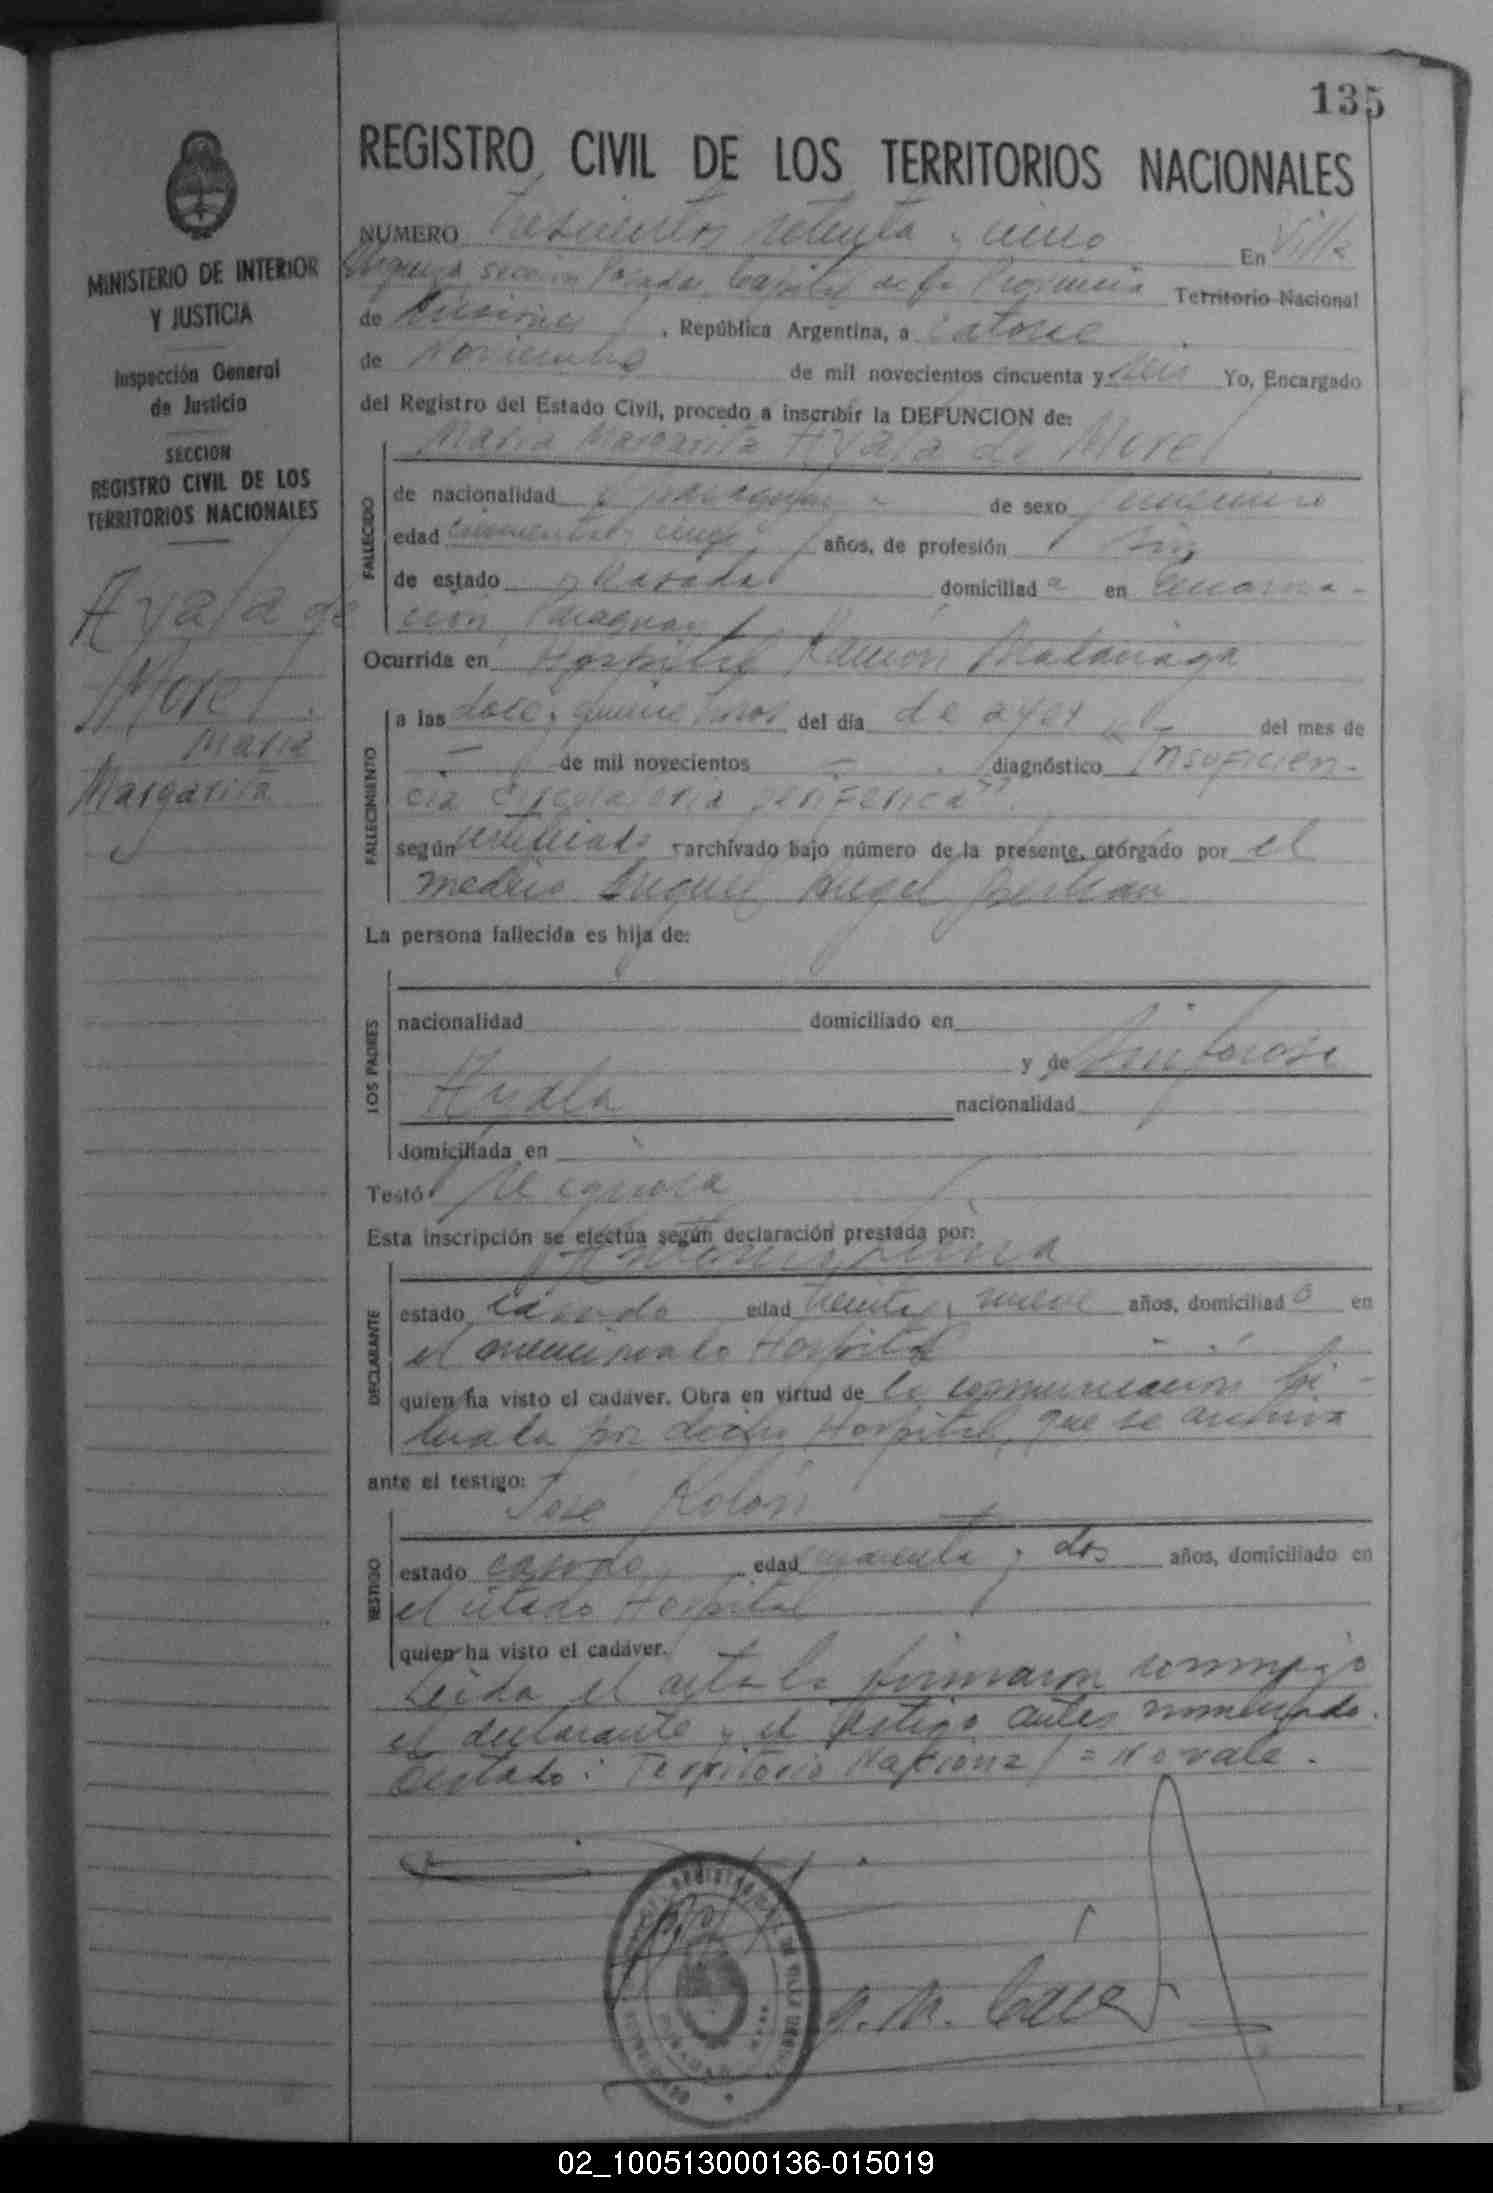 135
REGISTRO CIVIL DE LOS TERRITORIOS NACIONALES
MINISTERIO DE INTERIOR
Y JUSTICIA
Inspección General
de Justicia
SECCION
REGISTRO CIVIL DE LOS
TERRITORIOS NACIONALES
Ayala de
Morel
María
Margarita
NUMERO trescientos setenta y cinco En Villa
Urquiza, sección Posadas, Capital de la Provincia Territorio Nacional
de Misiones, República Argentina, a catorce
de Noviembre de mil novecientos cincuenta y seis Yo, Encargado
del Registro del Estado Civil, procedo a inscribir la DEFUNCION de:
María Margarita Ayala de Morel
FALLECIDO
de nacionalidad paraguaya de sexo femenino
edad cincuenta y cinco años, de profesión
de estado casada domiciliada en Encarna-
ción, Paraguay
Ocurrida en Hospital Ramón Madariaga
FALLECIMIENTO
a las doce y quince horas del día de ayer del mes de
— de mil novecientos — diagnóstico "Insuficien-
cia circulatoria periférica"
según certificado archivado bajo número de la presente, otorgado por el
médico Miguel Angel
La persona fallecida es hija de:
LOS PADRES
nacionalidad domiciliado en
y de
Ayala nacionalidad
domiciliada en
Testó Se ignora
Esta inscripción se efectúa según declaración prestada por:
Antonio
DECLARANTE
estado casado edad treinta y nueve años, domiciliado en
el mencionado Hospital
quien ha visto el cadáver. Obra en virtud de la comunicación
por dicho Hospital, que se archiva
ante el testigo:
José Kolon
TESTIGO
estado casado edad cuarenta y dos años, domiciliado en
el citado Hospital
quien ha visto el cadáver.
Leída el acta la firmaron conmigo
el declarante y el testigo antes nombrado.
Testado: Territorio Nacional = No vale.
02_100513000136-015019